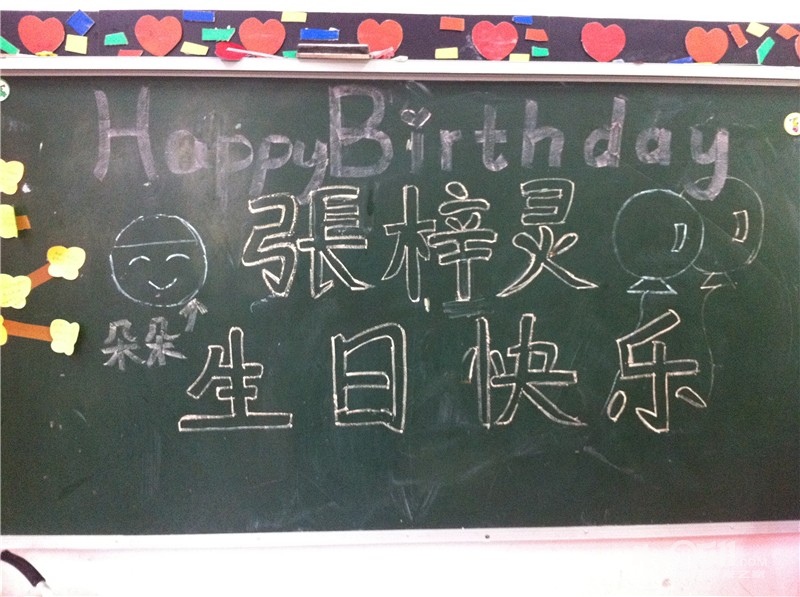 Happy Birthday
張梓灵
朵朵
生日快乐